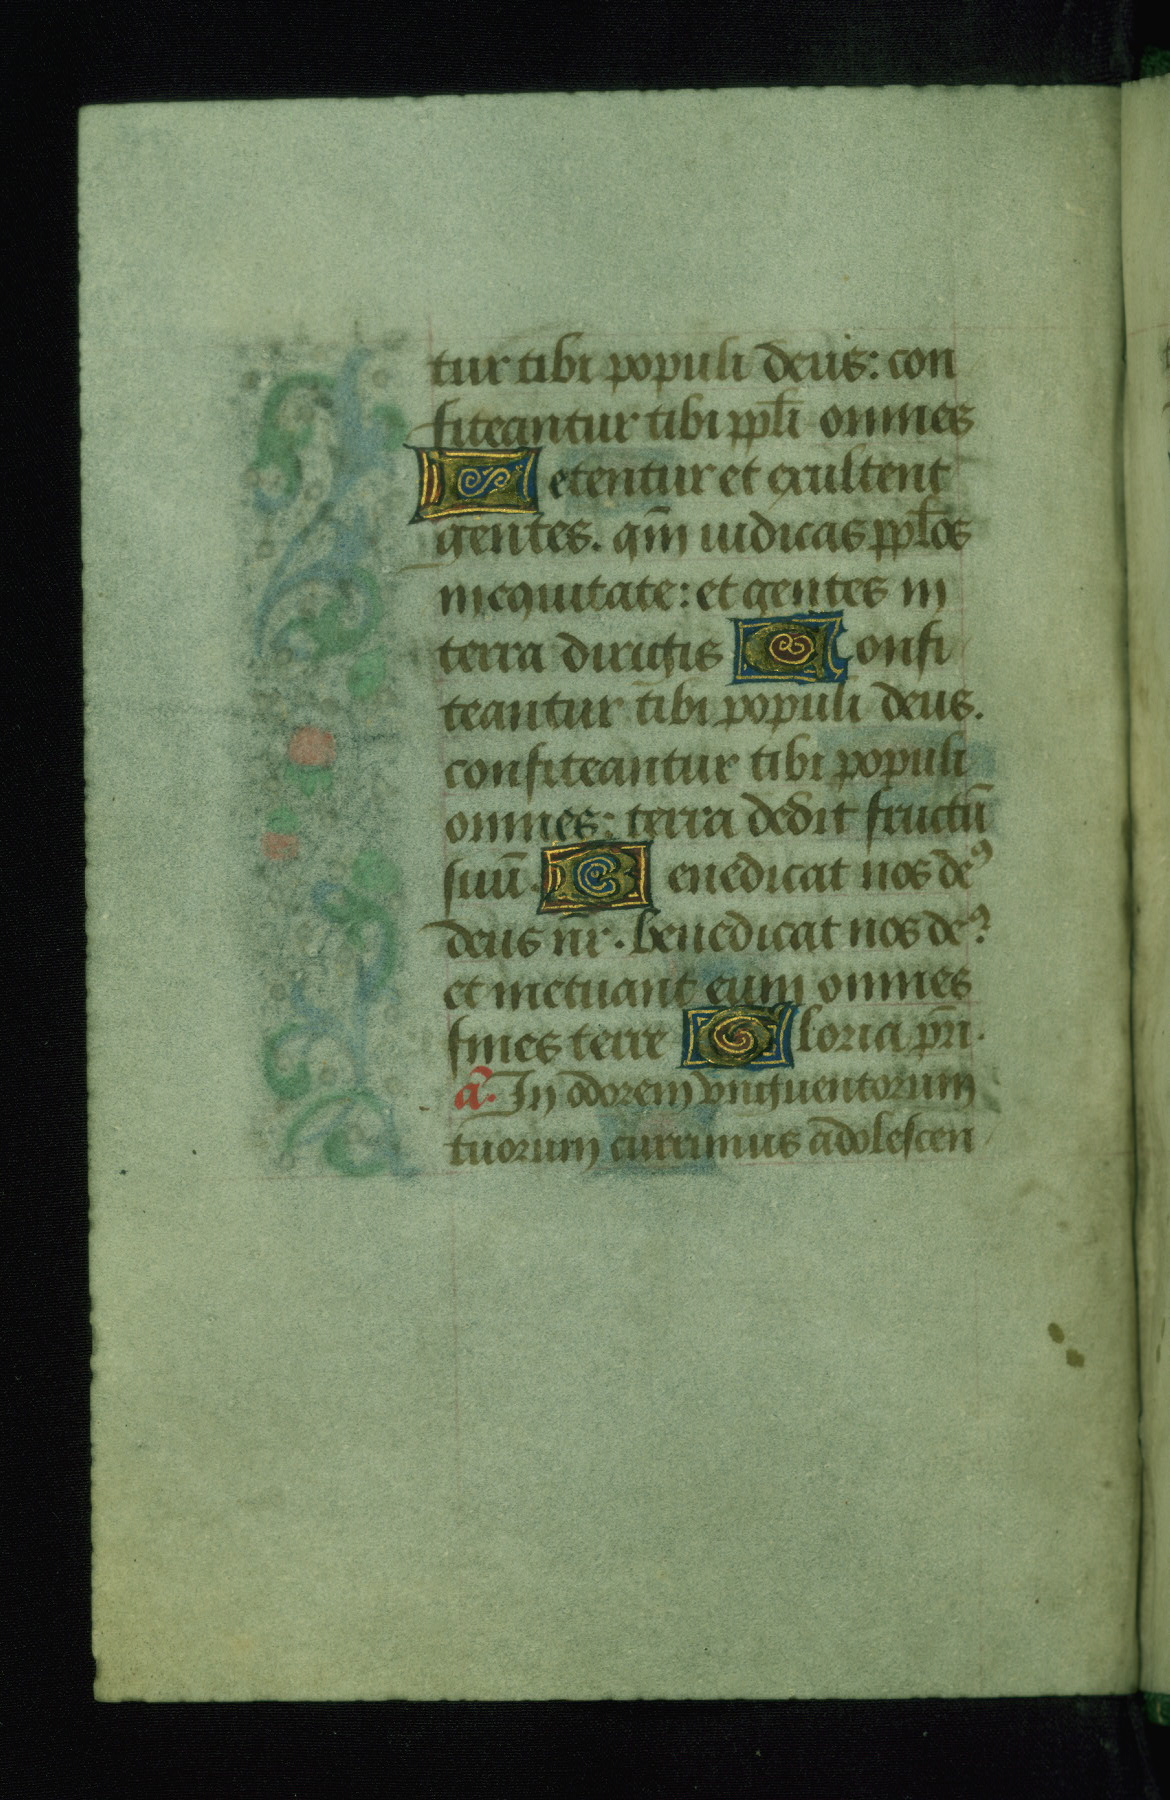 tur tibi populi deus: con
fiteantur tibi ppl̄i omnes
Letentur et exultent
gentes. qm̄ iudicas ppl̄os
in equitate: et gentes in
terra dirigis Confi
teantur tibi populi deus.
confiteantur tibi populi
omnes: terra dedit fructū
suū. Benedicat nos deꝰ
deus nr̄. benedicat nos deꝰ.
et metuant eum omnes
fines terre Gloria pr̄i.
a. In odorem vnguentorum
tuorum currimus adolescen